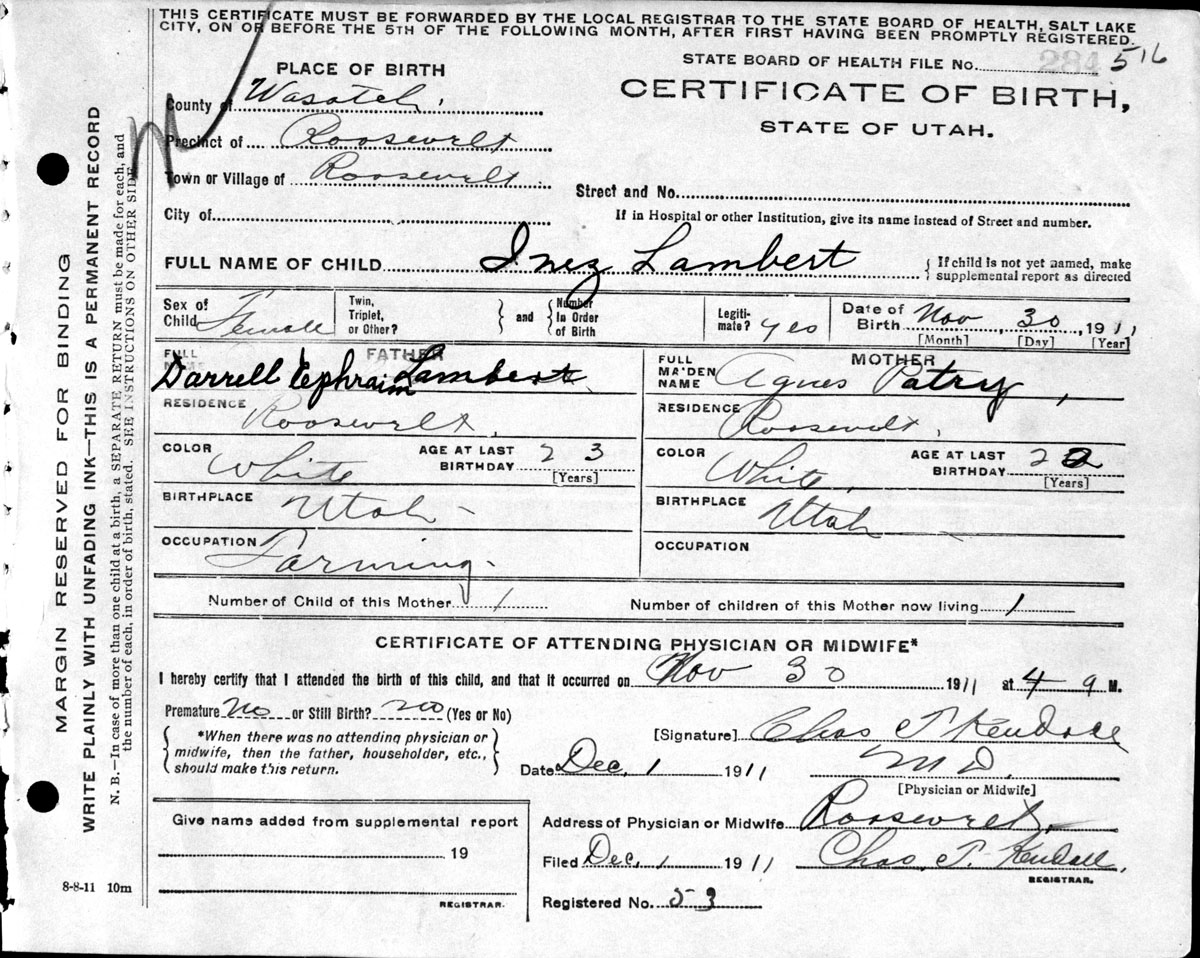 THIS CERTIFICATE MUST BE FORWARDED BY THE LOCAL REGISTRAR TO THE STATE BOARD OF HEALTH, SALT LAKE
CITY, ON OR BEFORE THE 5TH OF THE FOLLOWING MONTH, AFTER FIRST HAVING BEEN PROMPTLY REGISTERED.
STATE BOARD OF HEALTH FILE No. 284 516
CERTIFICATE OF BIRTH,
STATE OF UTAH.
PLACE OF BIRTH
County of Wasatch,
Precinct of Roosevelt
Town or Village of Roosevelt
Street and No.
City of
If in Hospital or other Institution, give its name instead of Street and number.
FULL NAME OF CHILD Inez Lambert
{ If child is not yet named, make
supplemental report as directed
Sex of Child Female
Twin, Triplet, or Other?
} and {
Number In Order of Birth
Legiti-mate? yes
Date of Birth Nov 30, 1911
[Month] [Day] [Year]
FATHER
FULL NAME
Darrell Ephraim Lambert
RESIDENCE Roosevelt,
COLOR White
AGE AT LAST BIRTHDAY 23
[Years]
BIRTHPLACE Utah -
OCCUPATION Farming -
MOTHER
FULL MA'DEN NAME Agnes Patry,
RESIDENCE Roosevelt,
COLOR White,
AGE AT LAST BIRTHDAY 22
[Years]
BIRTHPLACE Utah
OCCUPATION
Number of Child of this Mother 1
Number of children of this Mother now living 1
CERTIFICATE OF ATTENDING PHYSICIAN OR MIDWIFE*
I hereby certify that I attended the birth of this child, and that it occurred on Nov 30 1911 at 4 a M.
Premature No or Still Birth? no (Yes or No)
{ *When there was no attending physician or
midwife, then the father, householder, etc.,
should make this return. }
[Signature] Chas T Kendall
Date Dec, 1 1911 M D.
[Physician or Midwife]
Give name added from supplemental report
19
REGISTRAR.
Address of Physician or Midwife Roosevelt,
Filed Dec, 1 1911 Chas, T. Kendall,
REGISTRAR.
Registered No. 53
8-8-11 10m
MARGIN RESERVED FOR BINDING
WRITE PLAINLY WITH UNFADING INK—THIS IS A PERMANENT RECORD
N. B.—In case of more than one child at a birth, a SEPARATE RETURN must be made for each, and
the number of each, in order of birth, stated. SEE INSTRUCTIONS ON OTHER SIDE.